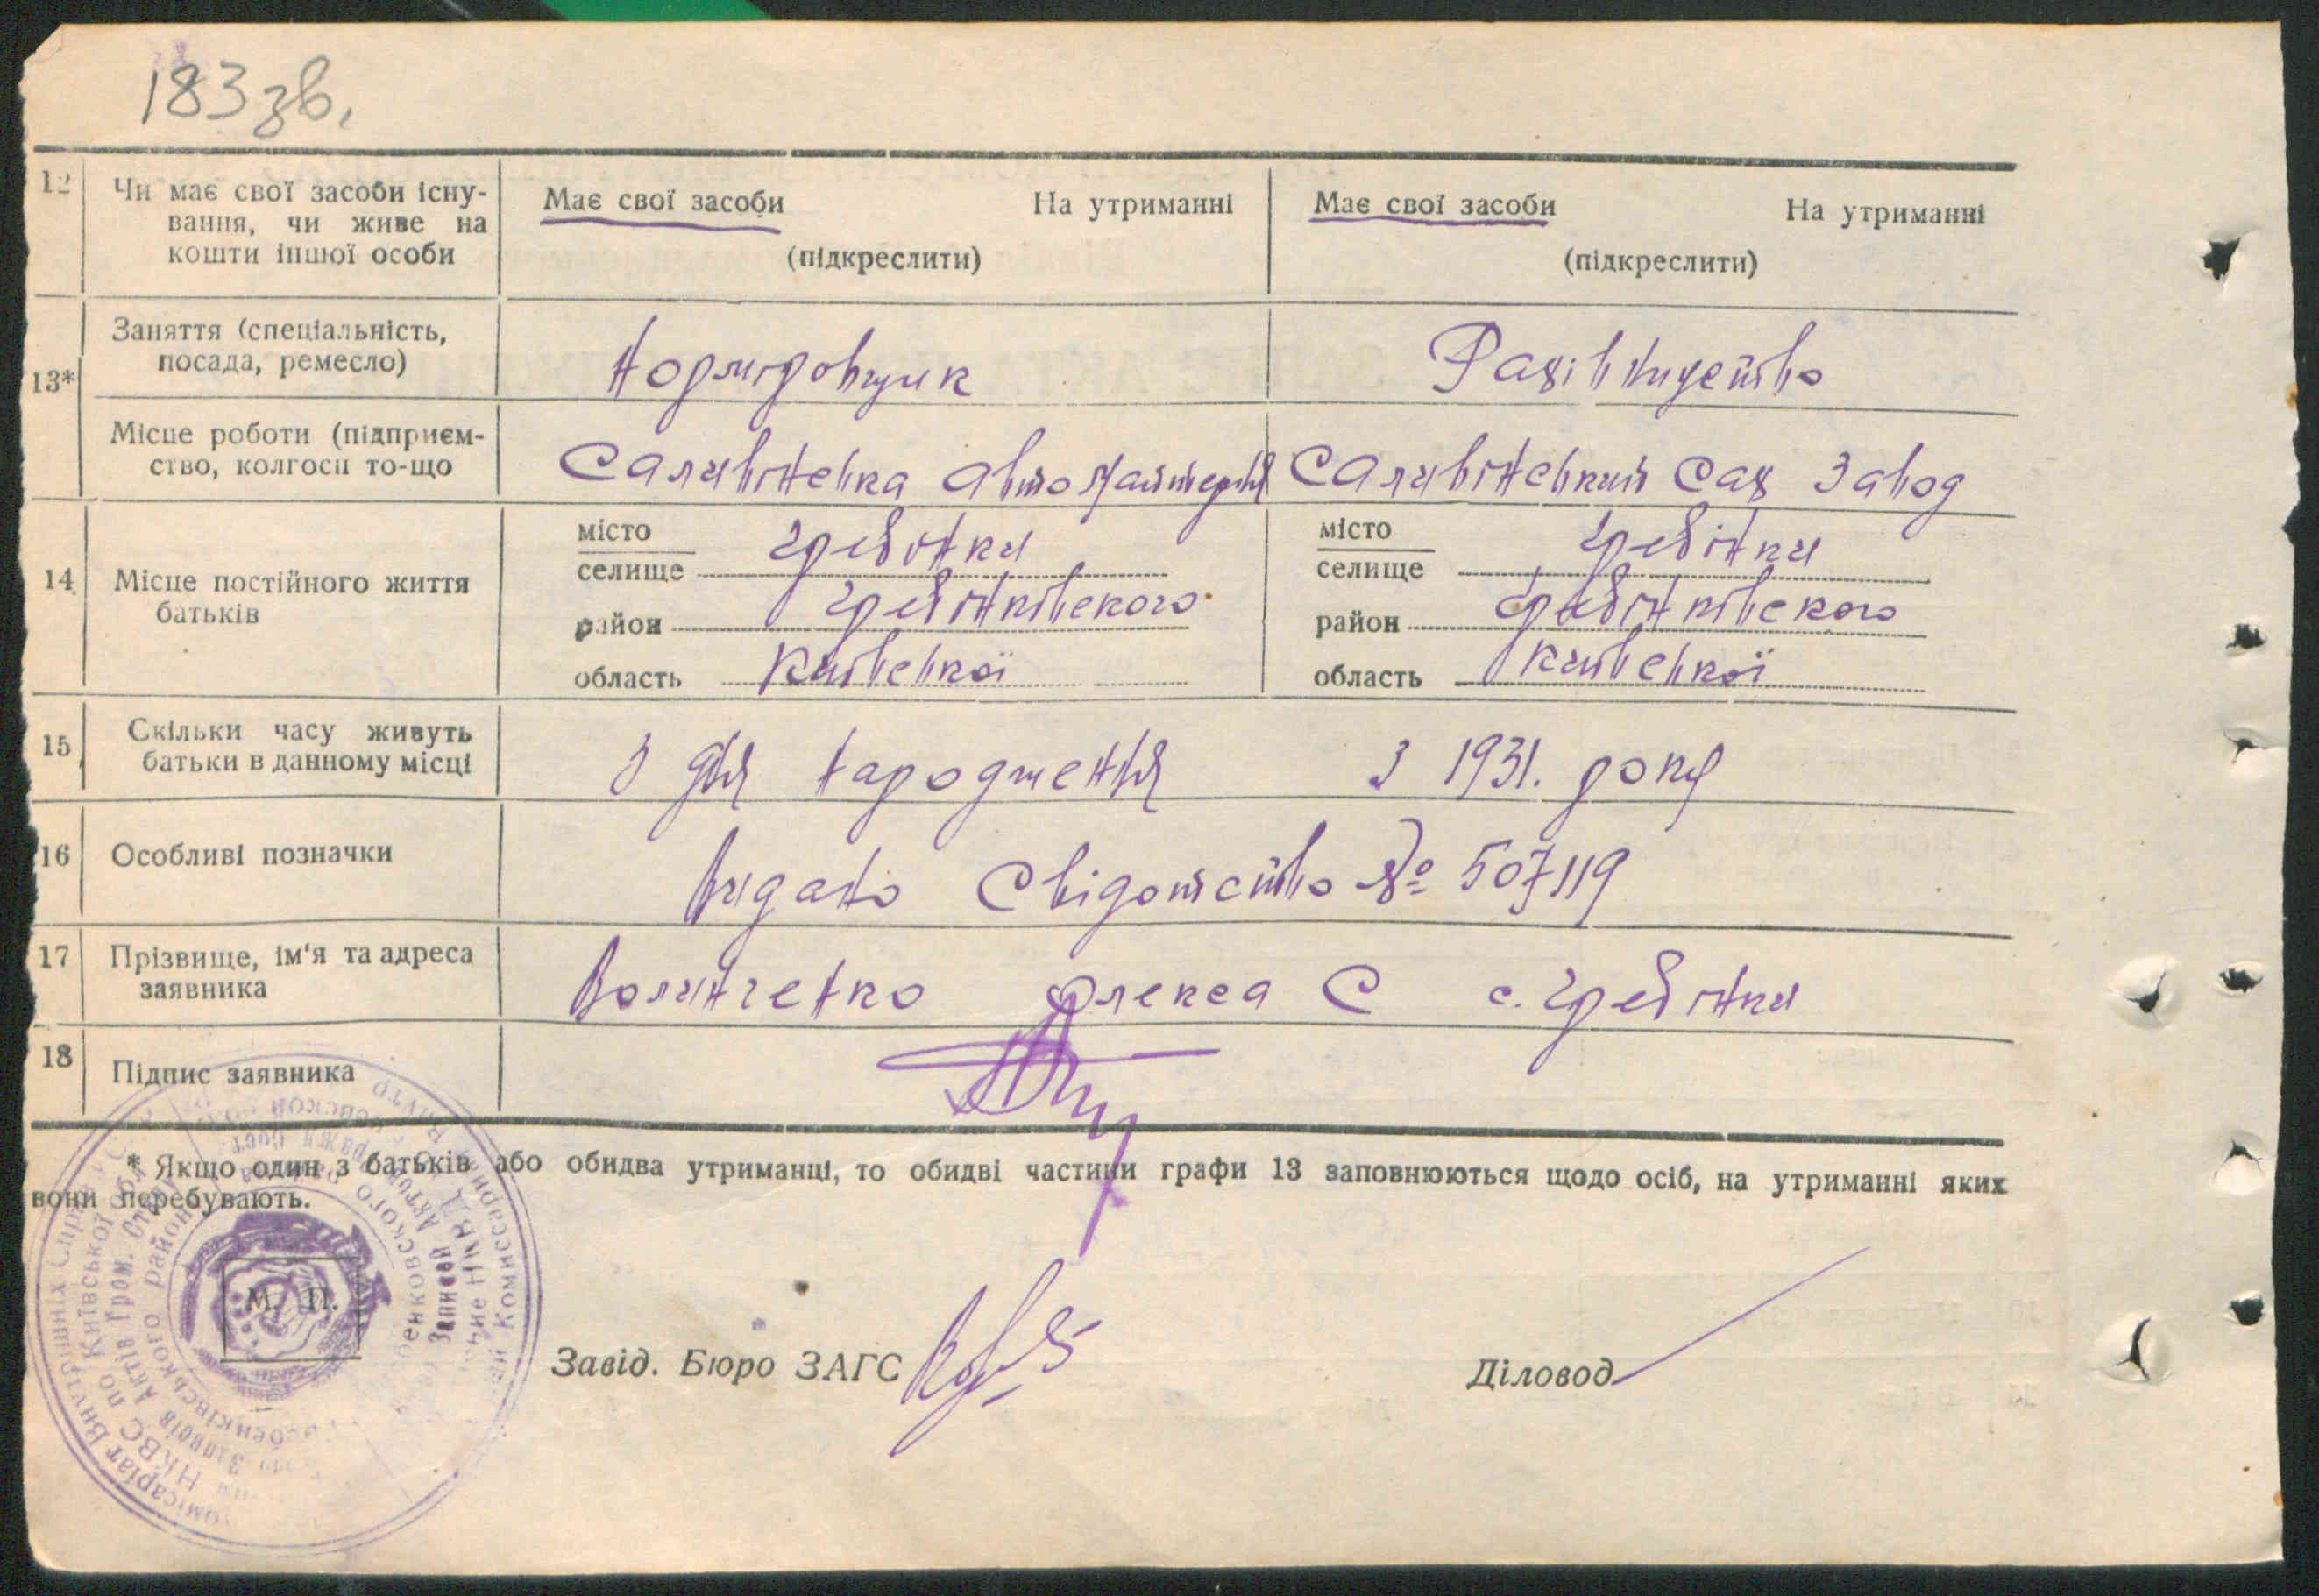 183 зв.
12 Чи має свої засоби існу-
вання, чи живе на
кошти іншої особи
Має свої засоби На утриманні
(підкреслити)
Має свої засоби На утриманні
(підкреслити)
13*
Заняття (спеціальність,
посада, ремесло)
Нормировщик
Рахівництво
Місце роботи (підприєм-
ство, колгосп то-що
Саливінська автомайстерня
Саливінський Сах Завод
14 Місце постійного життя
батьків
місто
селище Гребінки
район Гребінківского
область Київської
місто
селище Гребінки
район Гребінківского
область Київської
15 Скільки часу живуть
батьки в данному місці
З дня народження
З 1931. року
16 Особливі позначки
Видано Свідотство № 507119
17 Прізвище, ім'я та адреса
заявника
Волинченко Олекса С с. Гребінки
18 Підпис заявника
* Якщо один з батьків або обидва утриманці, то обидві частини графи 13 заповнюються щодо осіб, на утриманні яких
вони перебувають.
М. П.
Завід. Бюро ЗАГС
Діловод